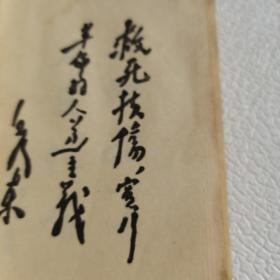 救死扶傷，實行
革命的人道主義
毛澤東